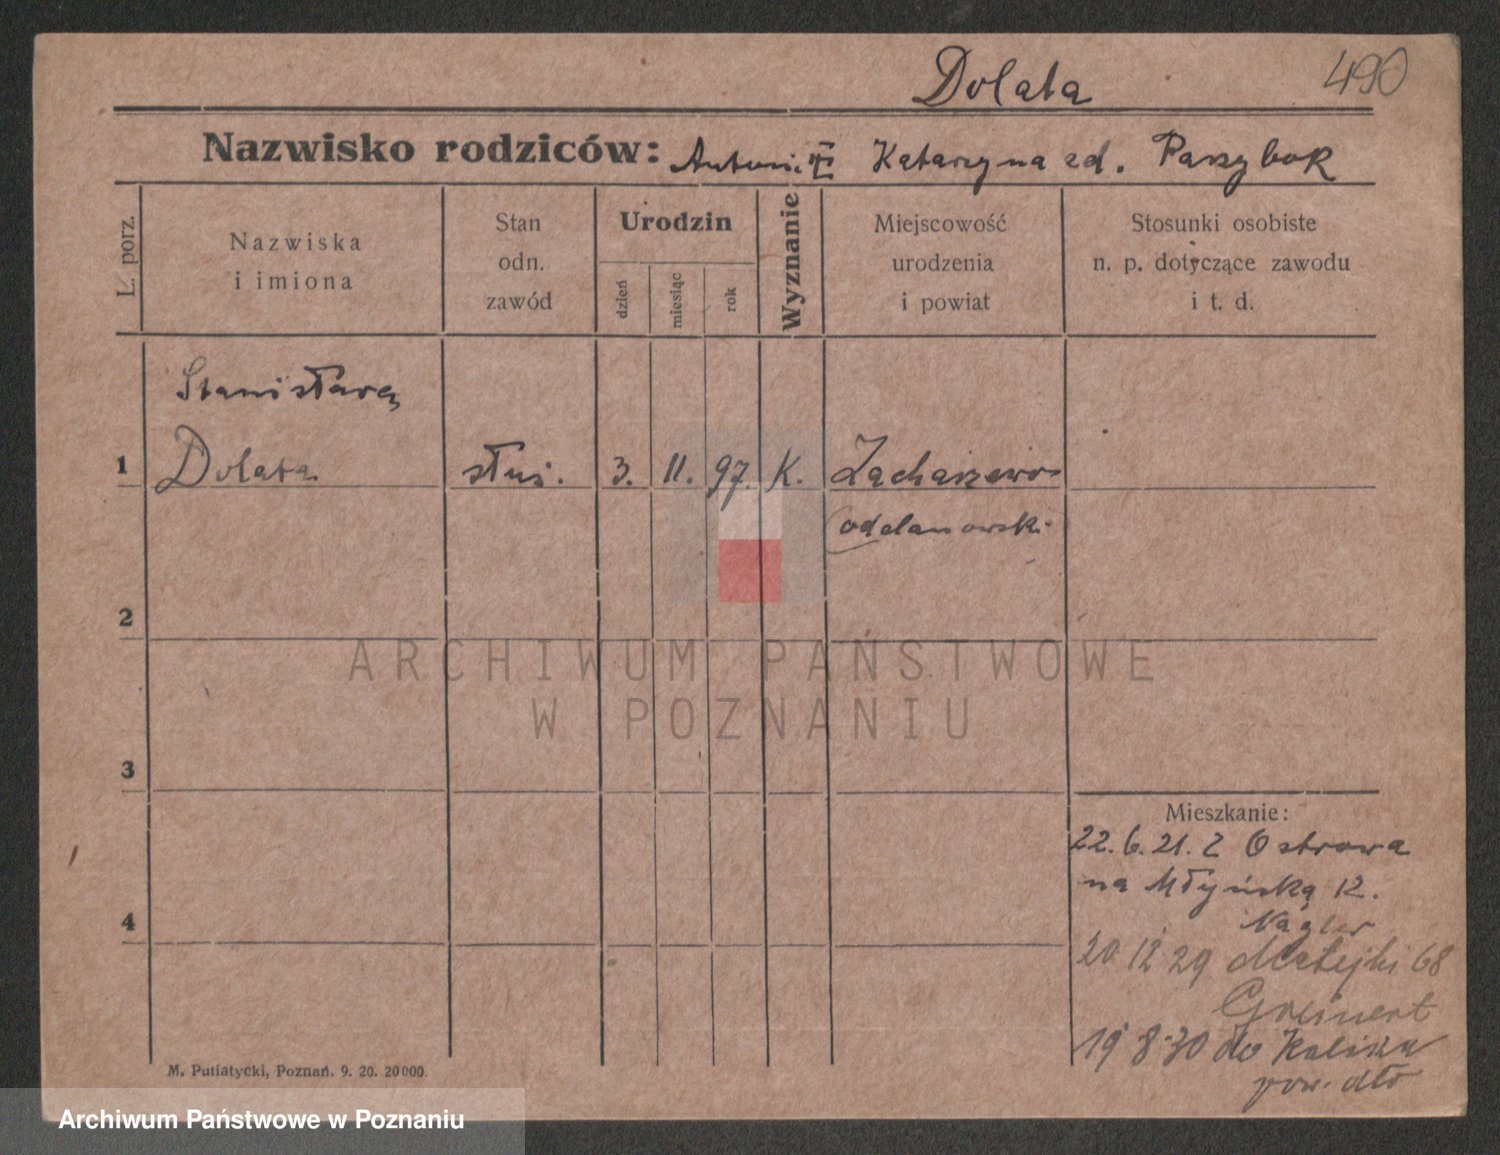 Dolata
490
Nazwisko rodziców: Antoni Katarzyna zd. Paszybok
L. porz.
Nazwiska
i imiona
Stan
odn.
zawód
Urodzin
dzień
miesiąc
rok
Wyznanie
Miejscowość
urodzenia
i powiat
Stosunki osobiste
n. p. dotyczące zawodu
i t. d.
Stanisława
1 Dolata służ. 3. 11. 97. K. Zacharzewo
odolanowski
2
ARCHIWUM PAŃSTWOWE
W POZNANIU
3
Mieszkanie:
22.6.21. Z Ostrowa
na Młyńską 12.
Nagler
4
20 12 29 Matejki 68
Greinert
19 8 30 do Kalisza
M. Putiatycki, Poznań. 9. 20. 20000.
Archiwum Państwowe w Poznaniu